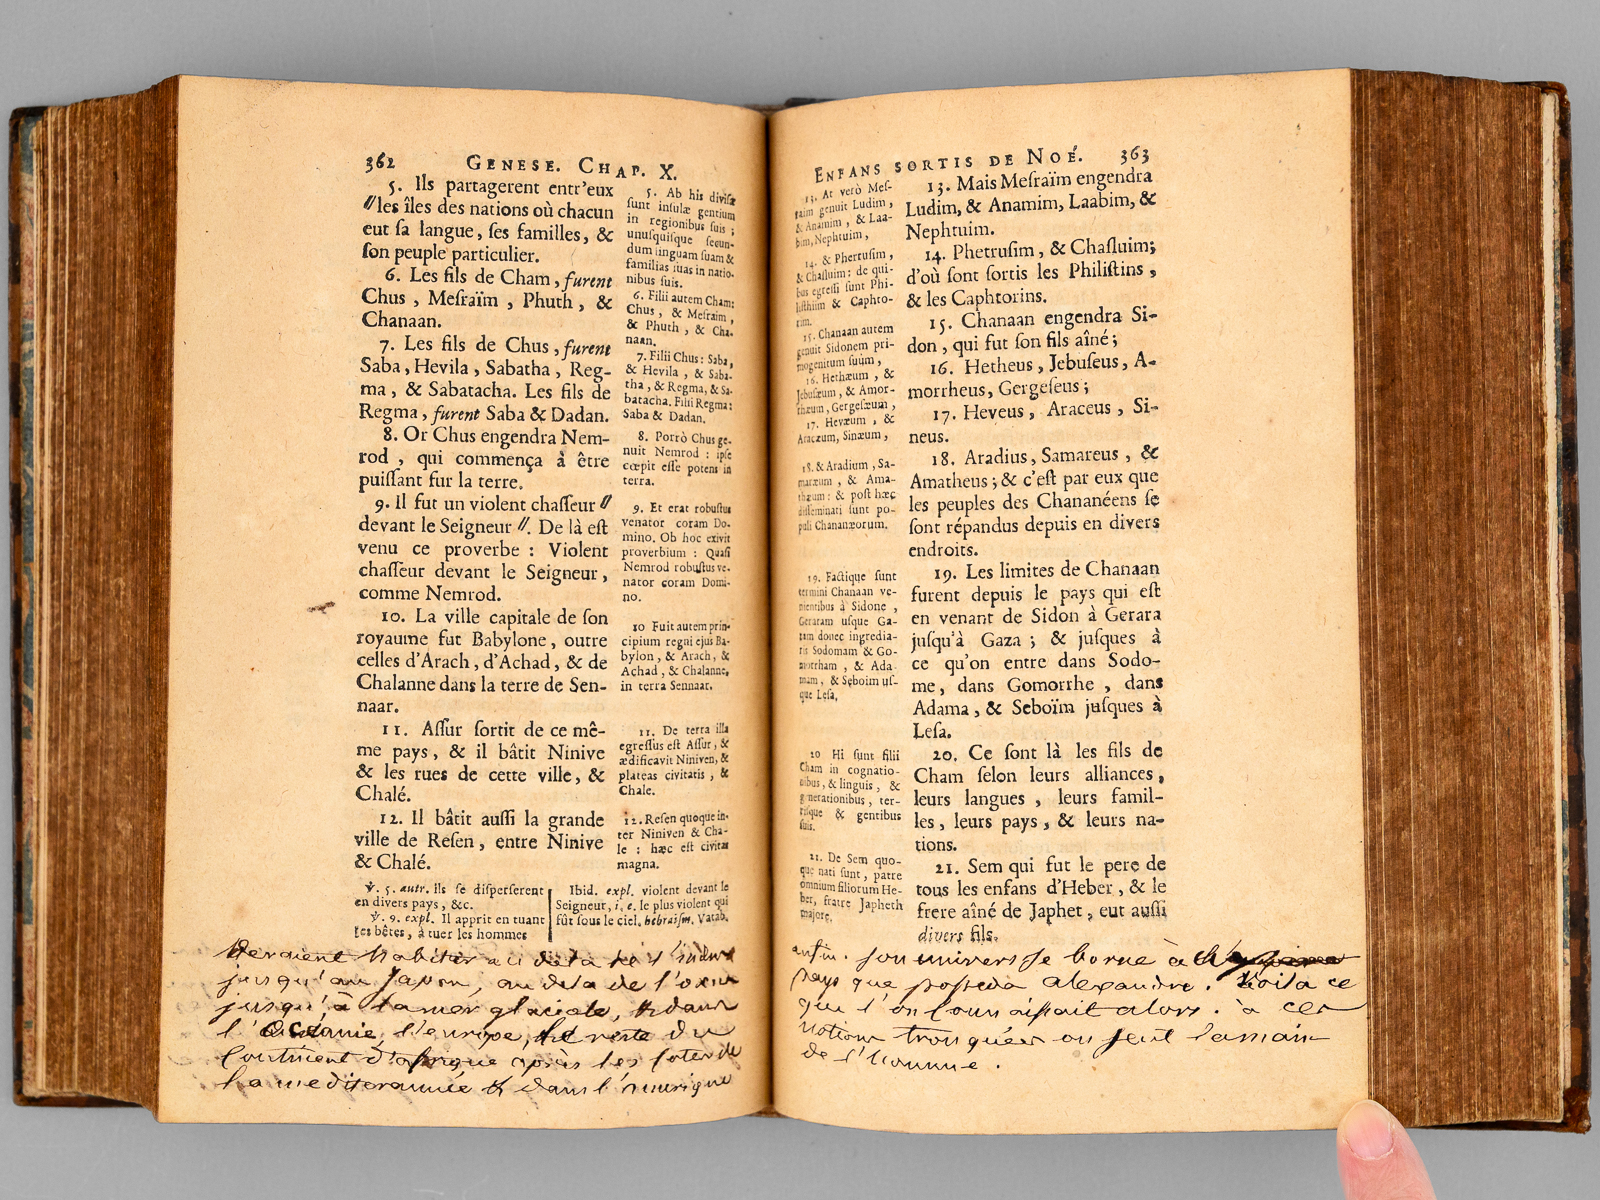 362 GENESE. CHAP. X.
5. Ils partagerent entr'eux
〃les îles des nations où chacun
eut ſa langue, ſes familles, &
ſon peuple particulier.
6. Les fils de Cham, furent
Chus, Meſraïm, Phuth, &
Chanaan.
7. Les fils de Chus, furent
Saba, Hevila, Sabatha, Reg-
ma, & Sabatacha. Les fils de
Regma, furent Saba & Dadan.
8. Or Chus engendra Nem-
rod, qui commença à être
puiſſant ſur la terre.
9. Il fut un violent chaſſeur 〃
devant le Seigneur 〃. De là eſt
venu ce proverbe : Violent
chaſſeur devant le Seigneur,
comme Nemrod.
10. La ville capitale de ſon
royaume fut Babylone, outre
celles d'Arach, d'Achad, & de
Chalanne dans la terre de Sen-
naar.
11. Aſſur ſortit de ce mê-
me pays, & il bâtit Ninive
& les rues de cette ville, &
Chalé.
12. Il bâtit auſſi la grande
ville de Reſen, entre Ninive
& Chalé.
5. Ab his diviſæ
ſunt inſulæ gentium
in regionibus ſuis ;
unuſquiſque ſecun-
dum linguam ſuam &
familias ſuas in natio-
nibus ſuis.
6. Filii autem Cham:
Chus, & Meſraim,
& Phuth, & Cha-
naan.
7. Filii Chus: Saba,
& Hevila, & Saba-
tha, & Regma, & Sa-
batacha. Filii Regma:
Saba & Dadan.
8. Porrò Chus ge-
nuit Nemrod : ipſe
cœpit eſſe potens in
terra.
9. Et erat robuſtus
venator coram Do-
mino. Ob hoc exivit
proverbium : Quaſi
Nemrod robuſtus ve-
nator coram Domi-
no.
10 Fuit autem prin-
cipium regni ejus Ba-
bylon, & Arach, &
Achad, & Chalanne,
in terra Sennaar.
11. De terra illa
egreſſus eſt Aſſur, &
ædificavit Niniven, &
plateas civitatis, &
Chale.
12. Reſen quoque in-
ter Niniven & Cha-
le : hæc eſt civitas
magna.
℣. 5. autr. Ils ſe diſperſerent
en divers pays, &c.
℣. 9. expl. Il apprit en tuant
les bêtes, à tuer les hommes
Ibid. expl. violent devant le
Seigneur, i. e. le plus violent qui
fût ſous le ciel. hebraiſm. Vatab.
habiter au dela de l'indus
jusqu'au Japon, au dela de l'oxus
jusqu'à la mer glaciale, & dans
l'océanie, l'europe, le reste du
Continent d'afrique après les cotes de
la mediterannée & dans l'amerique
ENFANS SORTIS DE NOÉ. 363
13. At verò Meſ-
raim genuit Ludim,
& Anamim, & Laa-
bim, Nephtuim,
14. & Phetruſim,
& Chaſluim: de qui-
bus egreſſi ſunt Phi-
liſthiim & Caphto-
rim.
15. Chanaan autem
genuit Sidonem pri-
mogenitum ſuum,
16. Hethæum, &
Jebuſæum, & Amor-
rhæum, Gergeſæum,
17. Hevæum, &
Aracæum, Sinæum,
18. & Aradium, Sa-
maræum, & Ama-
thæum: & poſt hæc
diſſeminati ſunt po-
puli Chananæorum.
19. Factique ſunt
termini Chanaan ve-
nientibus à Sidone,
Geraram uſque Ga-
zam donec ingredia-
ris Sodomam & Go-
morrham, & Ada-
mam, & Seboim uſ-
que Leſa.
20 Hi ſunt filii
Cham in cognatio-
nibus, & linguis, &
generationibus, ter-
riſque & gentibus
ſuis.
21. De Sem quo-
que nati ſunt, patre
omnium filiorum He-
ber, fratre Japheth
majore.
13. Mais Meſraïm engendra
Ludim, & Anamim, Laabim, &
Nephtuim.
14. Phetruſim, & Chaſluim;
d'où ſont ſortis les Philiſtins,
& les Caphtorins.
15. Chanaan engendra Si-
don, qui fut ſon fils aîné ;
16. Hetheus, Jebuſeus, A-
morrheus, Gergeſeus ;
17. Heveus, Araceus, Si-
neus.
18. Aradius, Samareus, &
Amatheus ; & c'eſt par eux que
les peuples des Chananéens ſe
ſont répandus depuis en divers
endroits.
19. Les limites de Chanaan
furent depuis le pays qui eſt
en venant de Sidon à Gerara
juſqu'à Gaza ; & juſques à
ce qu'on entre dans Sodo-
me, dans Gomorrhe, dans
Adama, & Seboïm juſques à
Leſa.
20. Ce ſont là les fils de
Cham ſelon leurs alliances,
leurs langues, leurs famil-
les, leurs pays, & leurs na-
tions.
21. Sem qui fut le pere de
tous les enfans d'Heber, & le
frere aîné de Japhet, eut auſſi
divers fils.
enfin. son univers se borne à
pays que posseda alexandre. Voila ce
que l'on connaissait alors. à ces
notions tronquées on sent la main
de l'homme.